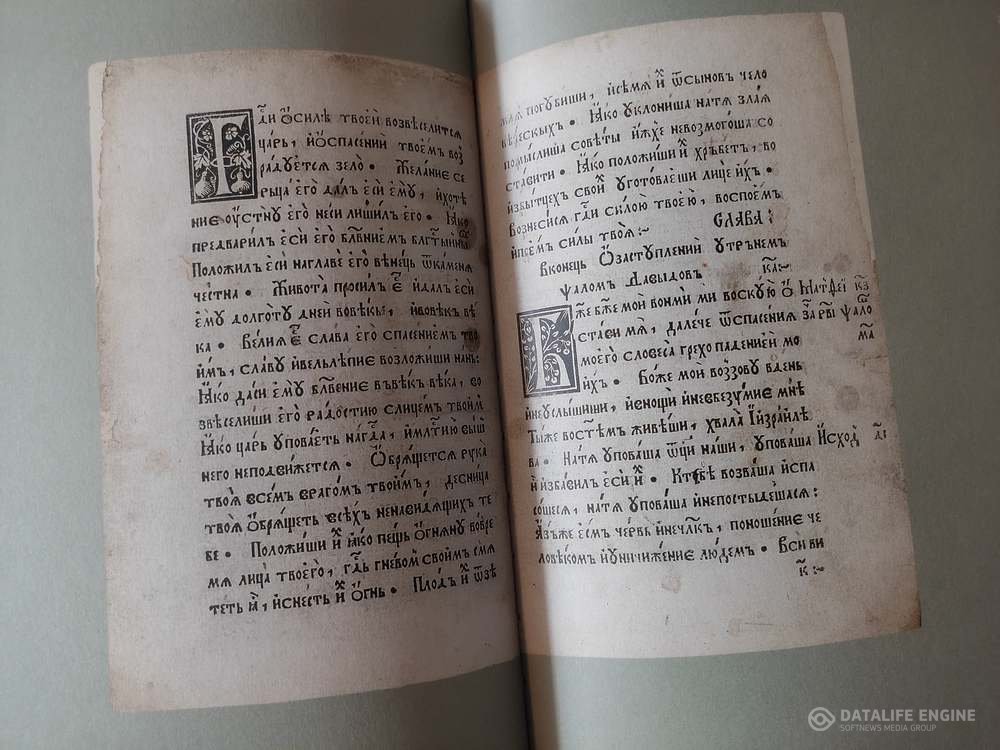 Гди ѡ҆силѣ твоей возвеселится
царь, иѡспасении твоемъ воз
радуется зело • Желание се
рьца его далъ еси ему, ихоте
ние оустну его неси лишилъ его • Ꙗко
предварилъ еси его бл҃вниемъ бл҃гтыннѣ
Положилъ еси наглаве его венець ѿкаменя
честна • Живота просилъ е҃ идалъ еси
ему долготу дней вовекъ, ивовекъ ве
ка • Велия е҃ слава его спасениемъ тво
имъ, славу ивельлепие возложиши нань:
Ꙗко даси ему бл҃вение въвекъ века, во
звеселиши его радостию слицемъ твоимъ
Ꙗко царь уповаеть нагда, имл҃тию выш
него неподвижется • Ѡбрящется рука
твоя всемъ врагомъ твоимъ, десница
твоя ѡбрящеть всехъ ненавидящих те
бе • Положиши ихъ ꙗко пещь ѡгняну вовре
мя лица твоего, гдь гневом своимъ смя
теть ꙗ, иснесть ихъ ѡгнь • Плодъ ихъ ѿзе
погубиши, исемя ихъ ѿсыновъ чело
веческыхъ • Ꙗко уклониша натя злая
помыслиша советы ихже невозмогоша со
ставити • Ꙗко положиши ихъ хрьбетъ, во
избытцех своихъ уготоваеши лице ихъ •
Вознесися гди силою твоею, воспоем
ипоемъ силы твоя:~
СЛАВА:
Вконець ѡзаступлении утрьнем
Ѱаломъ Давыдовъ к҃а:~
Бже бже мой вонми ми воскую ѡ
стави мя, далече ѿспасения
моего словеса грехопадении мо
ихъ • Боже мои воззову вдень
инеуслышиши, инощи иневбезумие мне
Тыже востѣмъ живеши, хвала Іизраиле
ва • Натя уповаша ѿци наши, уповаша
иизбавилъ еси ихъ • Ктебѣ возваша испа
сошеся, натя уповаша инепостыдешася:
Азъже есмъ червь инечлкъ, поношение че
ловекомъ иуничижение людемъ • Вси ви
к҃:~
Матфеі к҃з
за҃ рві ѱало
ма
Исход
DATALIFE ENGINE
SOFTNEWS MEDIA GROUP